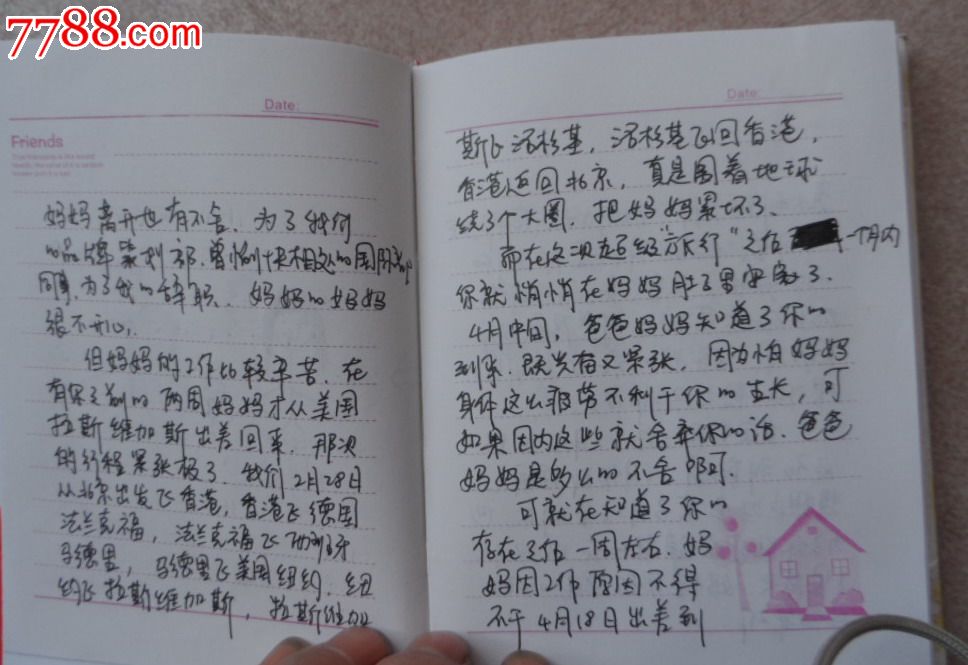 7788.com
Date:
Friends
妈妈离开也有不舍. 为了我们
的品牌策划部.
同事,为了我的辞职. 妈妈的妈妈
很不开心.
但妈妈的工作比较辛苦. 在
有你之前的两周妈妈才从美国
拉斯维加斯出差回来. 那次
的行程紧张极了. 我们2月28日
从北京出发飞香港,香港飞德国
法兰克福, 法兰克福飞西班牙
马德里, 马德里飞美国纽约. 纽
约飞拉斯维加斯, 拉斯维加
Date:
斯飞洛杉基, 洛杉基飞回香港,
香港返回北京, 真是围着地球
绕了个大圈. 把妈妈累坏了.
而在这次超级"旅行"之后一个月内
你就悄悄在妈妈肚子里安家了.
4月中旬, 爸爸妈妈知道了你的
到来. 既兴奋又紧张, 因为怕妈妈
身体这么疲劳不利于你的生长, 可
如果因为这些就舍弃你的话. 爸爸
妈妈是多么的不舍啊.
可就在知道了你的
存在了后一周左右. 妈
妈因工作原因不得
不于4月18日出差到